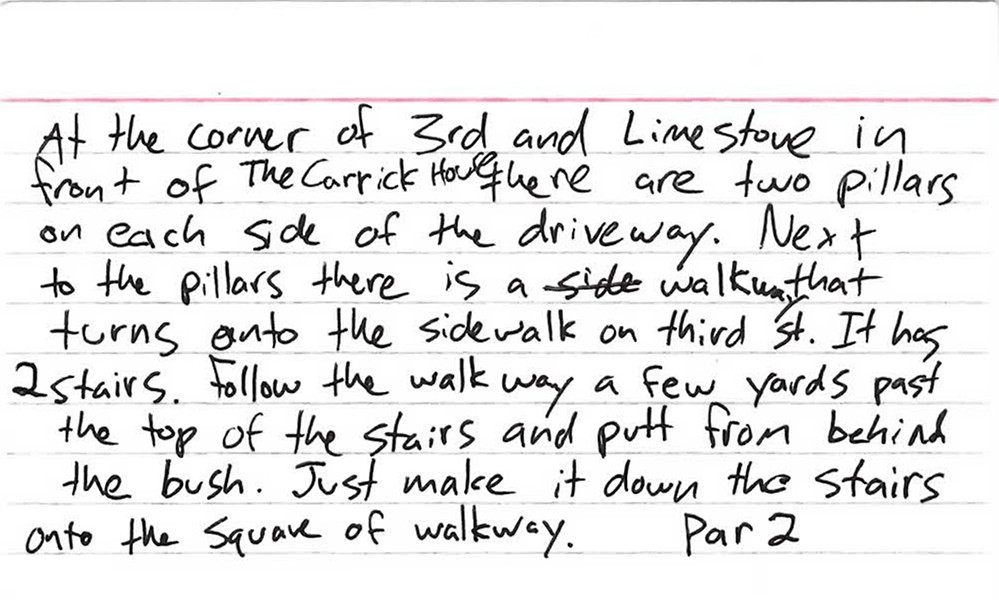 At the corner of 3rd and Limestone in
front of The Carrick House there are two pillars
on each side of the driveway. Next
to the pillars there is a side walkway that
turns onto the sidewalk on third st. It has
2 stairs. Follow the walkway a few yards past
the top of the stairs and putt from behind
the bush. Just make it down the stairs
onto the square of walkway. Par 2